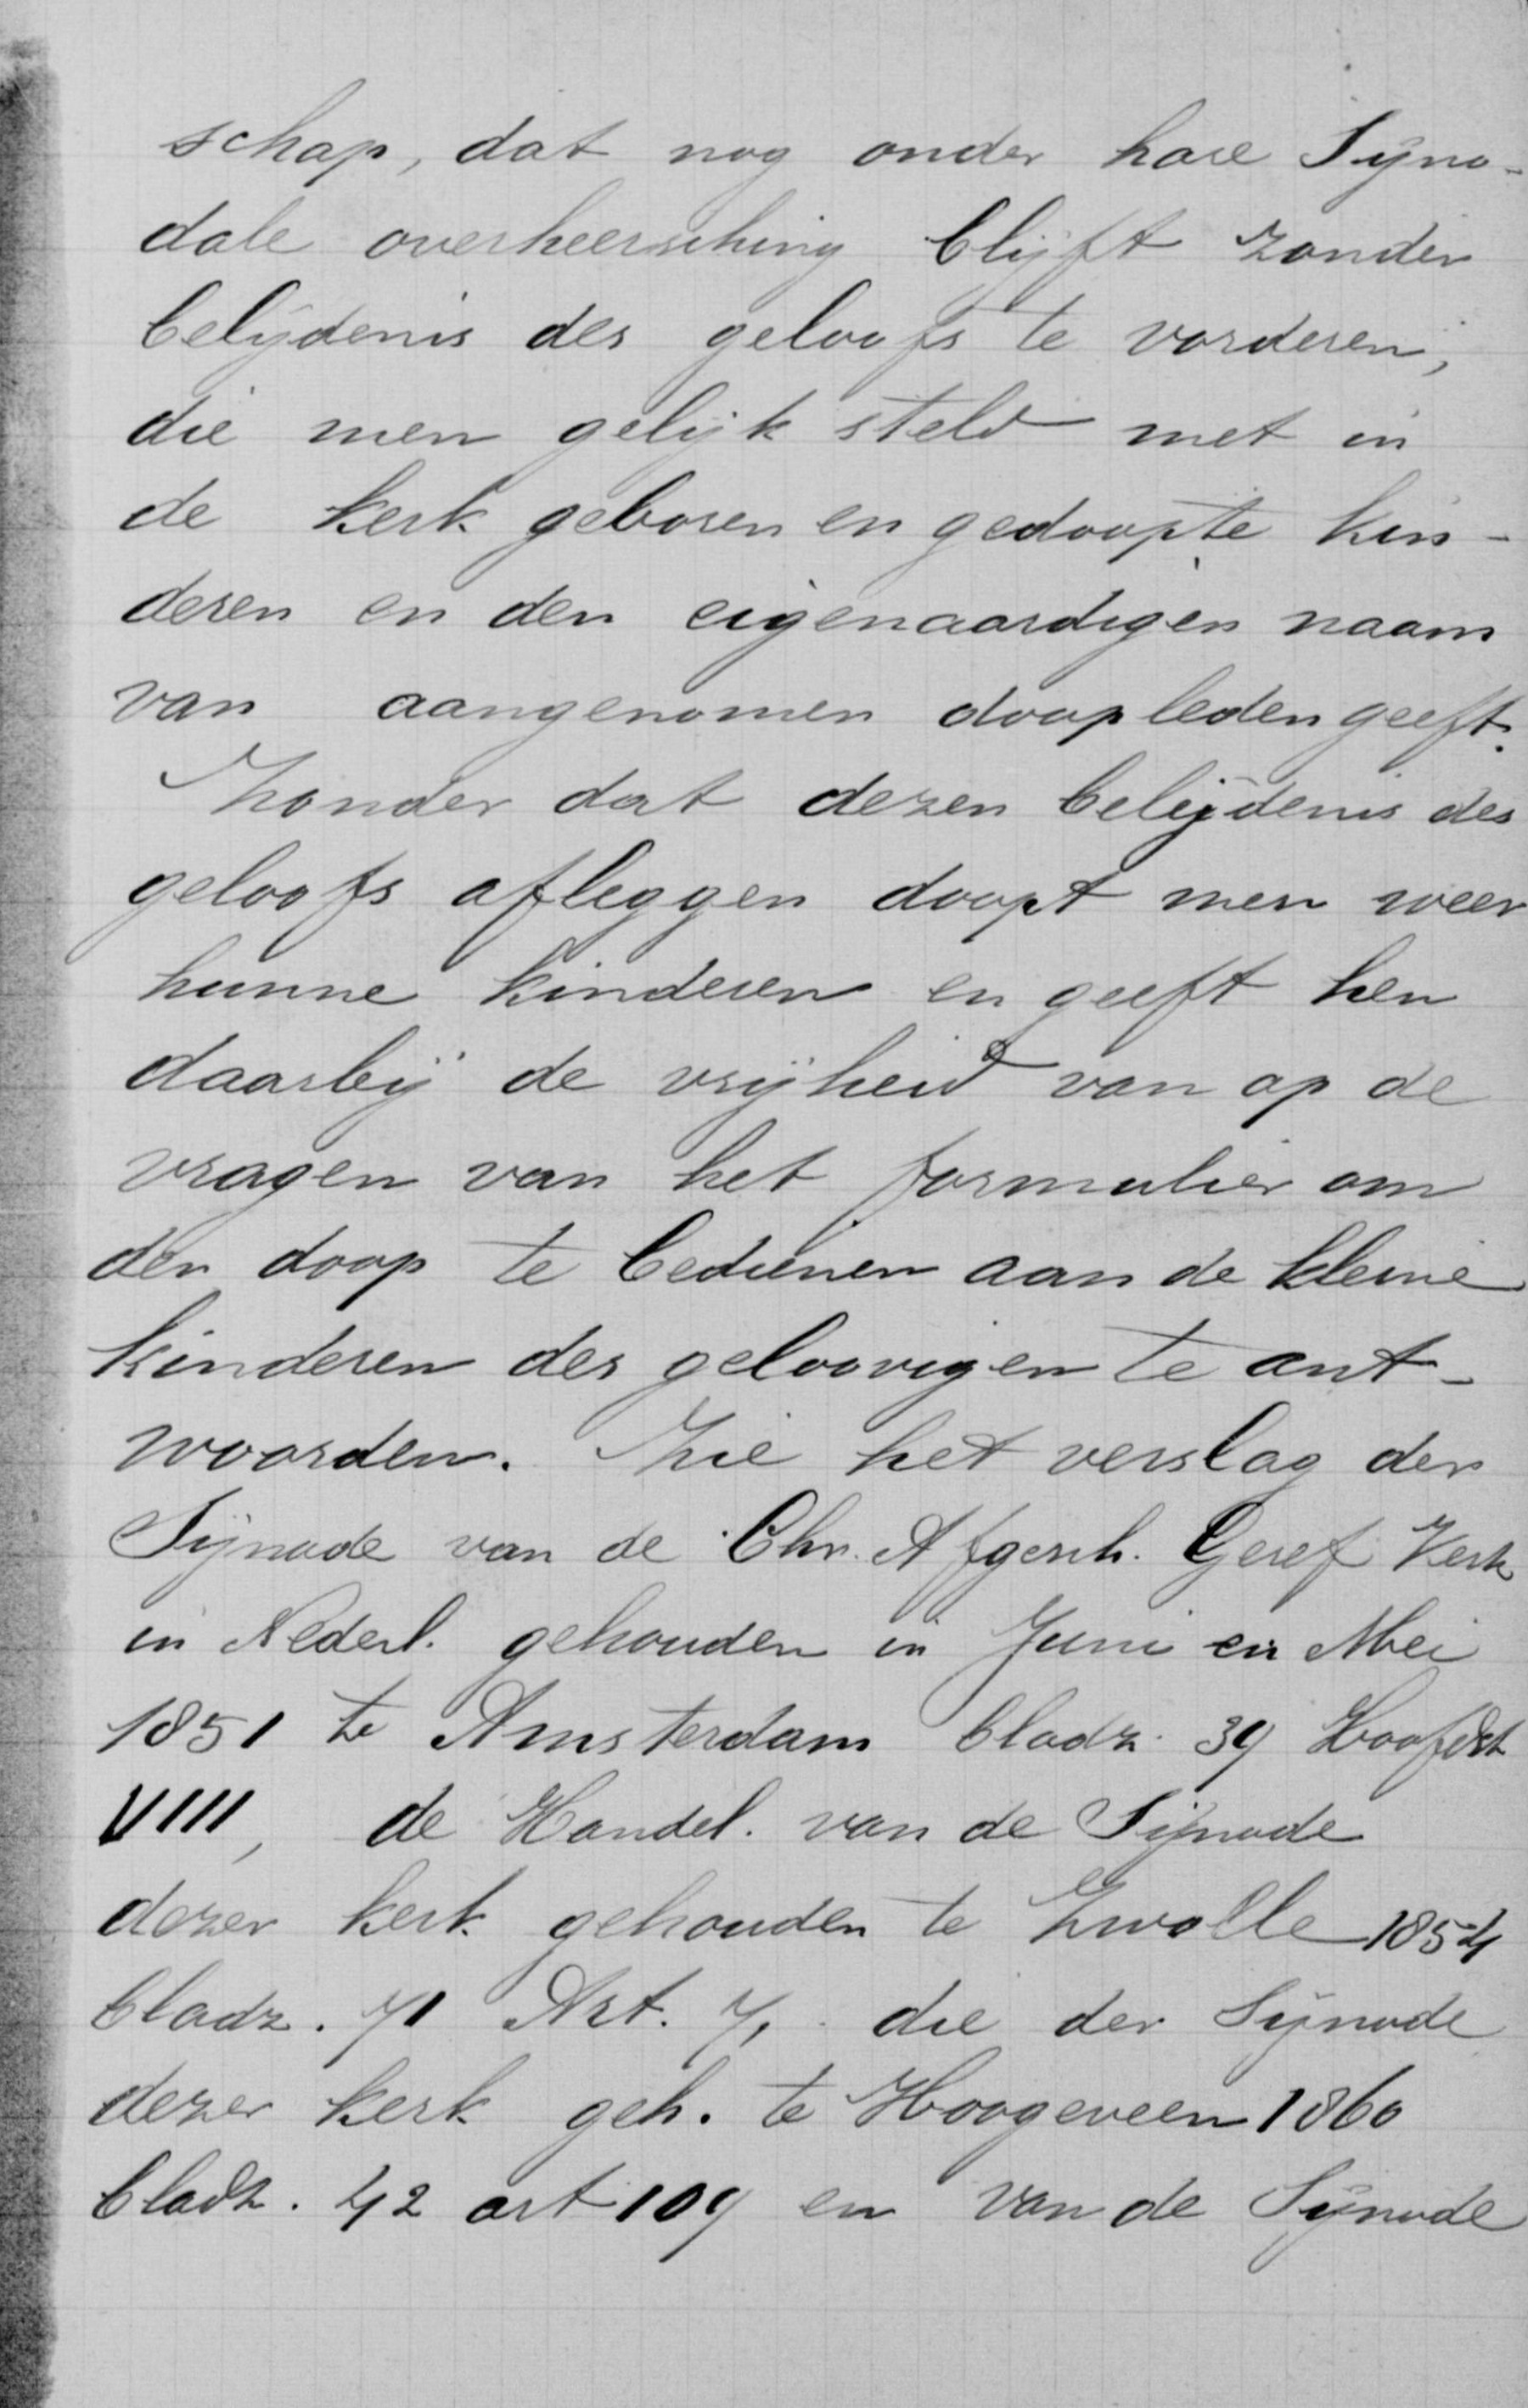 schap, dat nog onder hare Syno-
dale overheersching blijft zonder
belijdenis des geloofs te vorderen,
die men gelijk steld met in
de kerk geboren en gedoopte kin-
deren en den eigenaardigen naam
van aangenomen doopleden geeft.
Zonder dat dezen belijdenis des
geloofs afleggen doopt men weer
hunne kinderen en geeft hen
daarbij de vrijheid van op de
vragen van het formulier om
den doop te bedienen aan de kleine
kinderen der geloovigen te ant-
woorden. Zie het verslag der
Synode van de Chr. Afgesch. Geref Kerk
in Nederl. gehouden in Juni en Mei
1851 te Amsterdam bladz. 39 Hoofdst
VIIII, de Handel. van de Synode
dezer kerk gehouden te Zwolle 1854
bladz. 71 Art. 7, die der Synode
dezer kerk geh. te Hoogeveen 1860
bladz. 42 art 109 en van de Synode